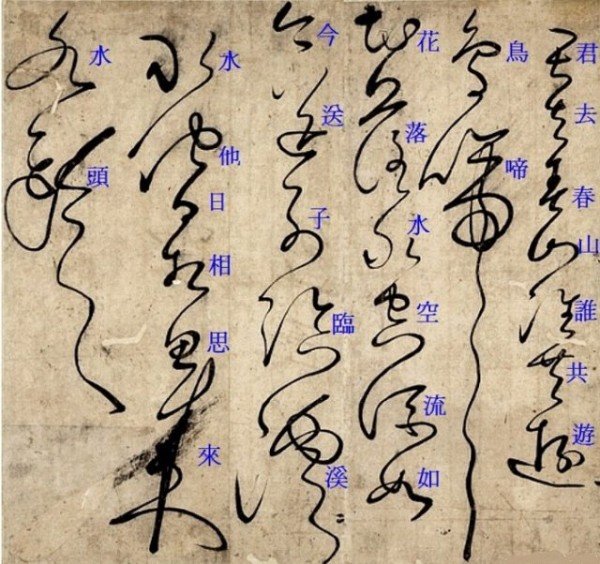 君去春山誰共遊
鳥啼
花落水空流如
今送子臨溪
水他日相思來
水頭